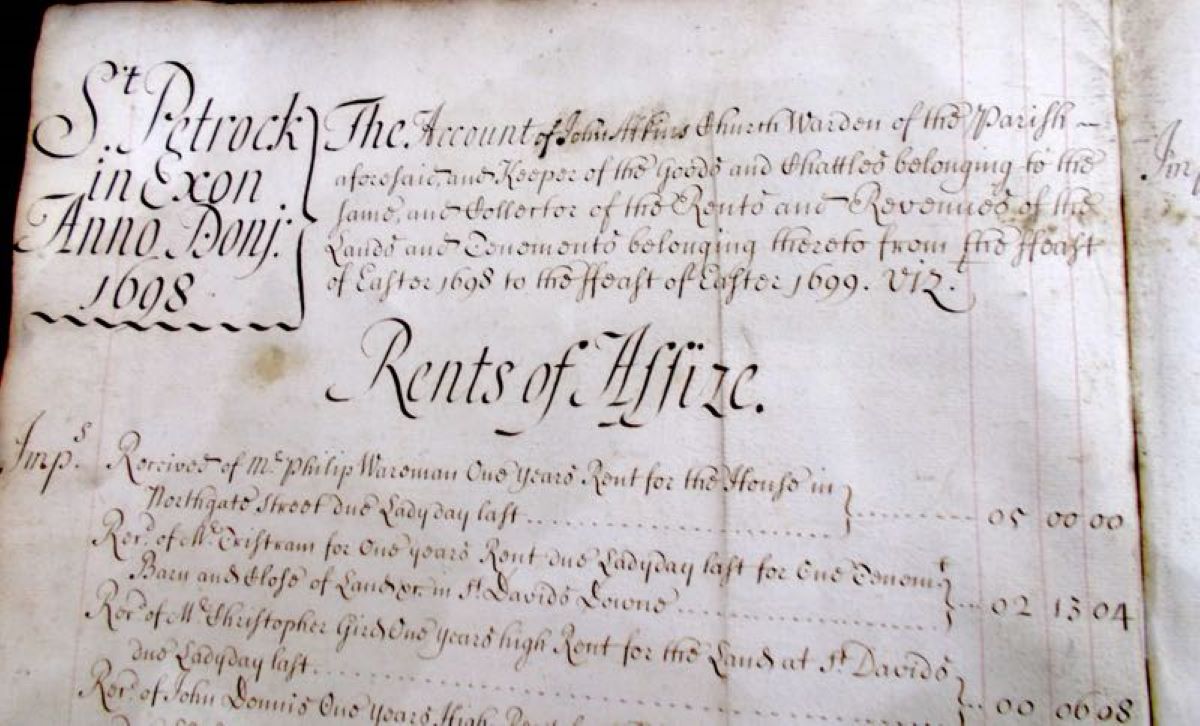 St. Petrock
in Exon
Anno Donj:
1698
The Account of John Atkins Church Warden of the Parish
aforesaid, and Keeper of the Goods and Chattles belonging to the
same, and Collector of the Rents and Revenues of the
Lands and Tenements belonging thereto from the ffeast
of Easter 1698 to the ffeast of Easter 1699. Viz.
Rents of Assize.
Imps. Received of Mr. Philip Wareman One years Rent for the House in
Northgate Street due Ladyday last 05 00 00
Rec. of Mr. Tristram for One years Rent due Ladyday last for One Tenemt
Barn and Close of Land &c. in St. Davids Downe 02 13 04
Rec. of Mr. Christopher Gird One years high Rent for the Land at St. Davids
due Ladyday last 00 06 08
Rec. of John Dennis One years High Rent
Imp